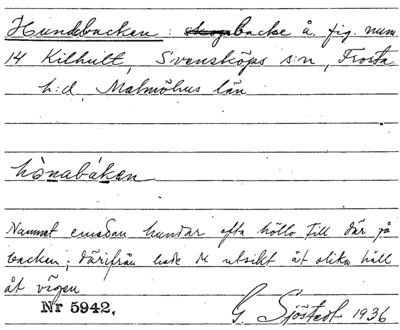 Hundabacken: skogsbacke å. fig. num.
14 Kilhult, Svensköps s:n, Frosta
h:d, Malmöhus län
hònabákan
Namnet emedan hundar ofta höllo till där på
backen; därifrån hade de utsikt åt olika håll
åt vägen
Nr 5942.
G. Sjöstedt 1936